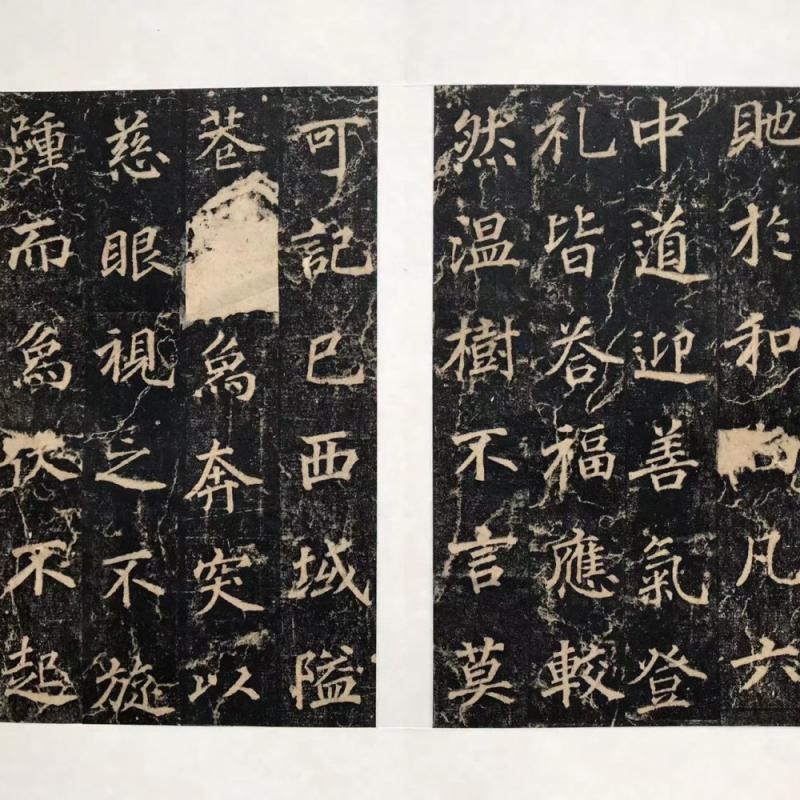 貤於和凡六
中道迎善氣登
礼皆荅福應較
然温樹不言莫
可記已西域隘
巷為奔突以
慈眼視之不旋
踵而為伏不起